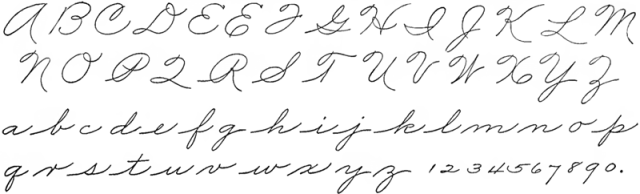 A B C D E E F G H I J K L M
N O P Q R S T U V W X Y Z
a b c d e f g h i j k l m n o p
q r s t u v w x y z 1 2 3 4 5 6 7 8 9 0 .